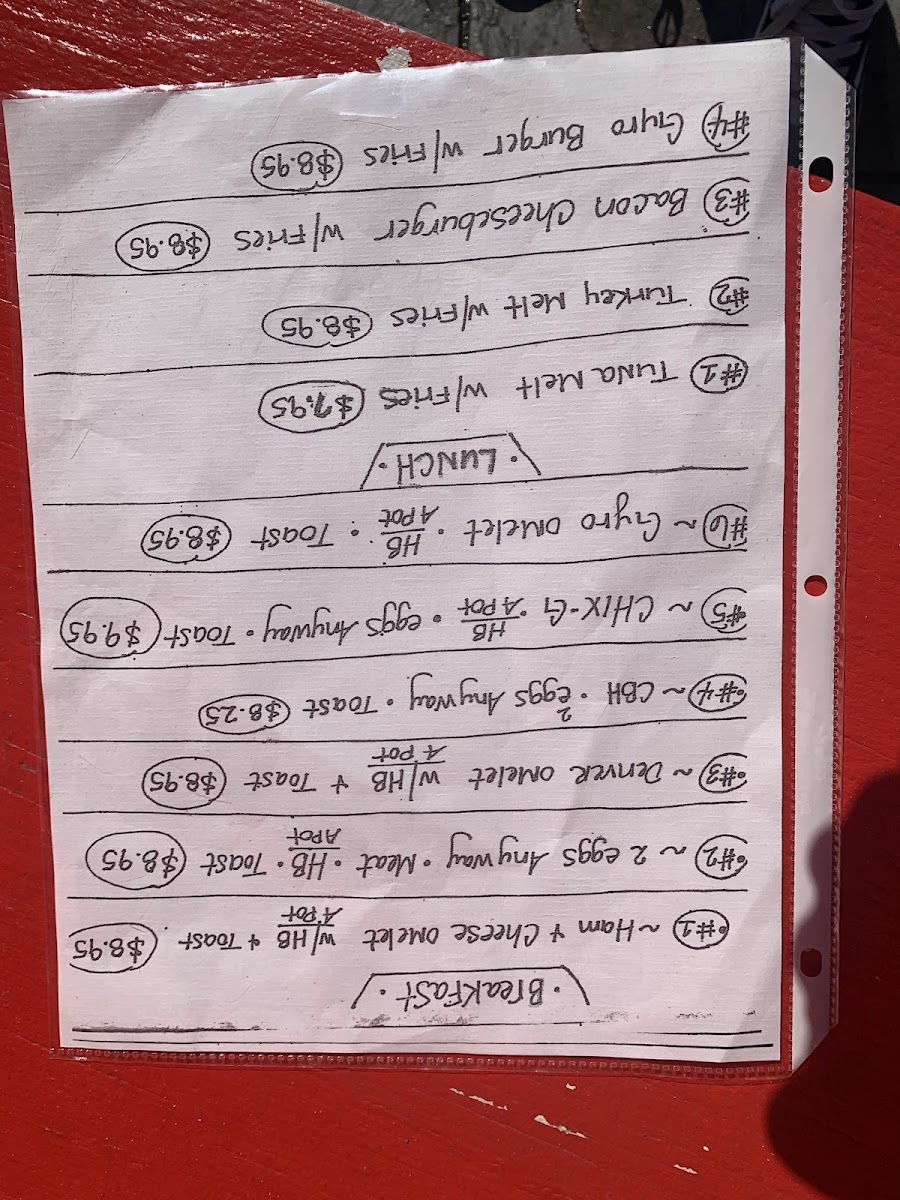 · Breakfast ·
#1 ~ Ham + Cheese omelet w/ HB + Toast $8.95
A Pot
#2 ~ 2 eggs Anyway · Meat · HB · Toast $8.95
A Pot
#3 ~ Denver omelet w/ HB + Toast $8.95
A Pot
#4 ~ CBH · 2 eggs Anyway · Toast $8.25
#5 ~ CHIX-G · HB · eggs Anyway · Toast $9.95
A Pot
#6 ~ Gyro omelet · HB · Toast $8.95
A Pot
· LUNCH ·
#1 Tuna Melt w/Fries $7.95
#2 Turkey Melt w/Fries $8.95
#3 Bacon Cheeseburger w/Fries $8.95
#4 Gyro Burger w/Fries $8.95